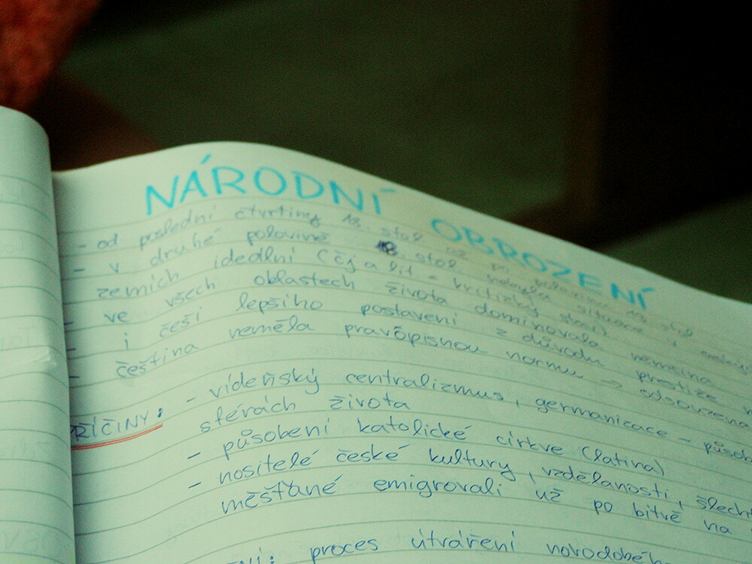 NÁRODNÍ OBROZENÍ
- od poslední čtvrtiny 18. stol
- v druhé polovině 18. stol nebyla situace v
zemích ideální (čj a lit = kritický stav)
- ve všech oblastech života dominovala němčina
- i češi lepšího postavení z důvodu prestiže
- čeština neměla pravopisnou normu → odsouzena
PŘÍČINY: - vídeňský centralizmus, germanizace -
sférách života
- působení katolické církve (latina)
- nositelé české kultury, vzdělanosti,
měšťané emigrovali už po bitvě na
proces utváření novodobého